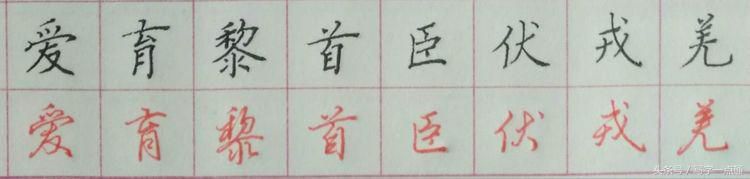 爱育黎首臣伏戎羌
爱育黎首臣伏戎羌
头条号/写字一点通